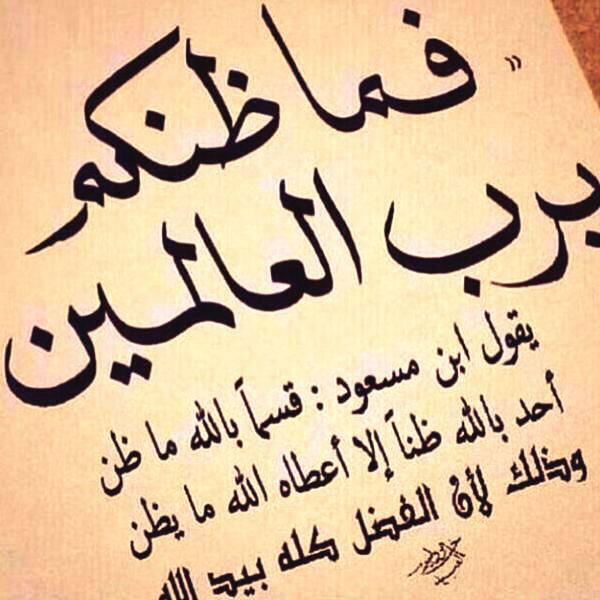 " فما ظنكم
برب العالمين
يقول ابن مسعود : قسماً بالله ما ظن
أحد بالله ظناً إلا أعطاه الله ما يظن
وذلك لأن الفضل كله بيد الله